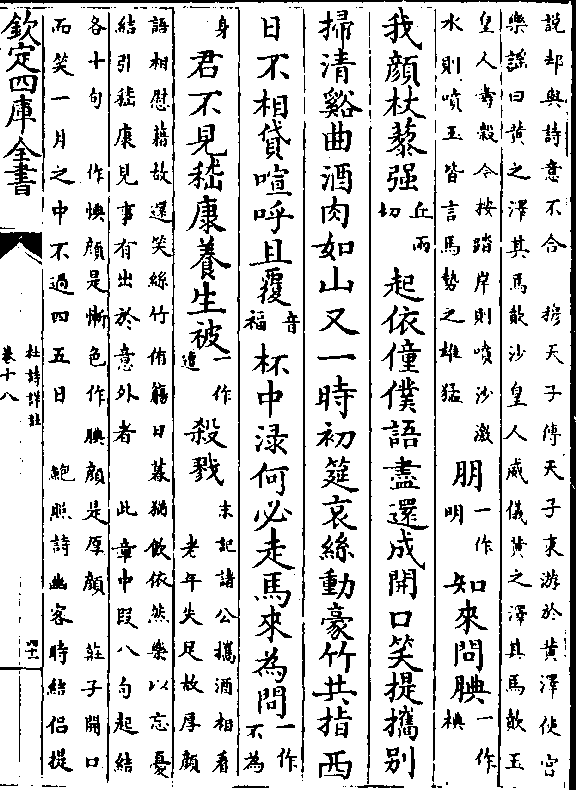 說却與詩意不合　穆天子傳天子東游於黄澤使宫
樂謡曰黄之澤其馬歕沙皇人威儀黄之澤其馬歕玉
皇人壽穀今按踏岸則噴沙激
水則噴玉皆言馬勢之雄猛
朋一作明知來問腆一作㥏
我顔杖藜强丘兩切起依僮僕語盡還成開口笑提攜别
掃清谿曲酒肉如山又一時初筵哀絲動豪竹共指西
日不相貸喧呼且覆音福杯中淥何必走馬來為問一作不為
身君不見嵇康養生被一作遭殺戮末記諸公攜酒相看
老年失足故厚顔
語相慰藉故還笑絲竹侑觴日暮猶飲依然樂以忘憂
結引嵇康見事有出於意外者　此章中段八句起結
各十句　作㥏顔是慚色作腆顔是厚顔　莊子開口
而笑一月之中不過四五日　鮑照詩幽客時結侣提
欽定四庫全書
杜詩詳註
卷十八